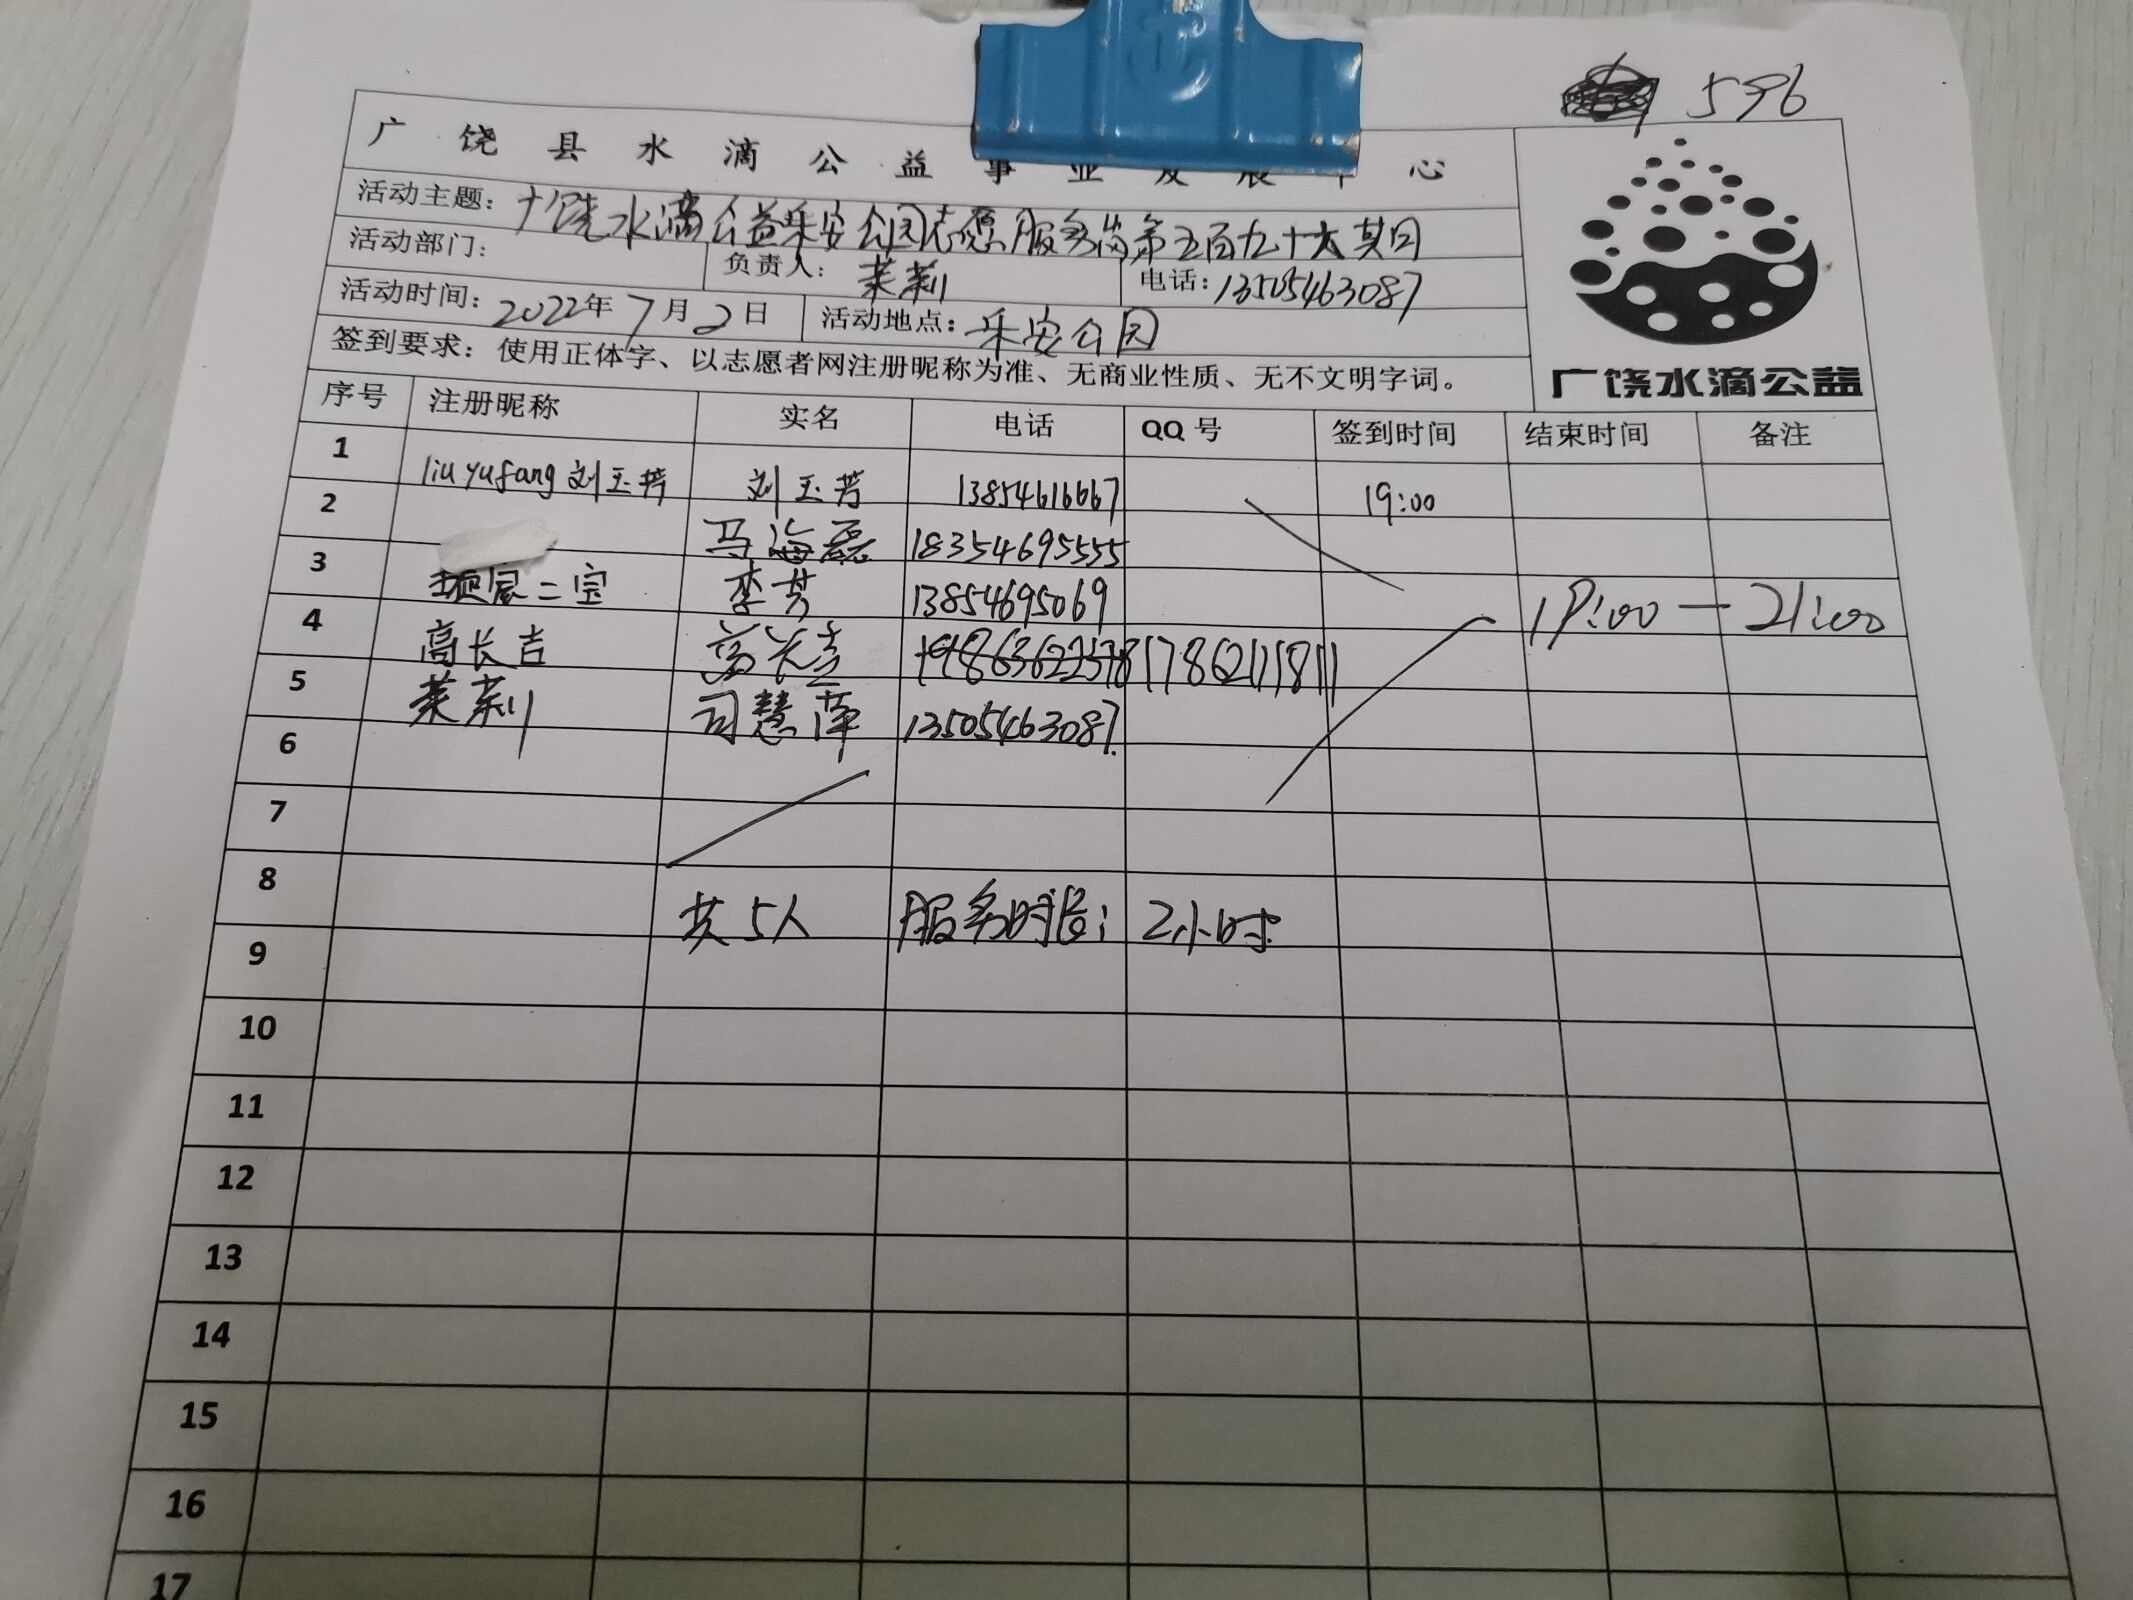 596
广饶县水滴公益事业发展中心
活动主题：广饶水滴公益乐安公园志愿服务岗第五百九十六期
活动部门： 负责人：茉莉 电话：13505463087
活动时间：2022年7月2日 活动地点：乐安公园
签到要求：使用正体字、以志愿者网注册昵称为准、无商业性质、无不文明字词。
广饶水滴公益
序号 注册昵称 实名 电话 QQ号 签到时间 结束时间 备注
1 liuyufang刘玉芳 刘玉芳 13854616667 19:00
2 马海磊 18354695555
3 家二宝 李芳 13854695069
19:00—21:00
4 高长吉 高长吉 19863622578 17862115811
5 茉莉 司慧萍 13505463087
6
7
8 共5人 服务时长： 2小时
9
10
11
12
13
14
15
16
17